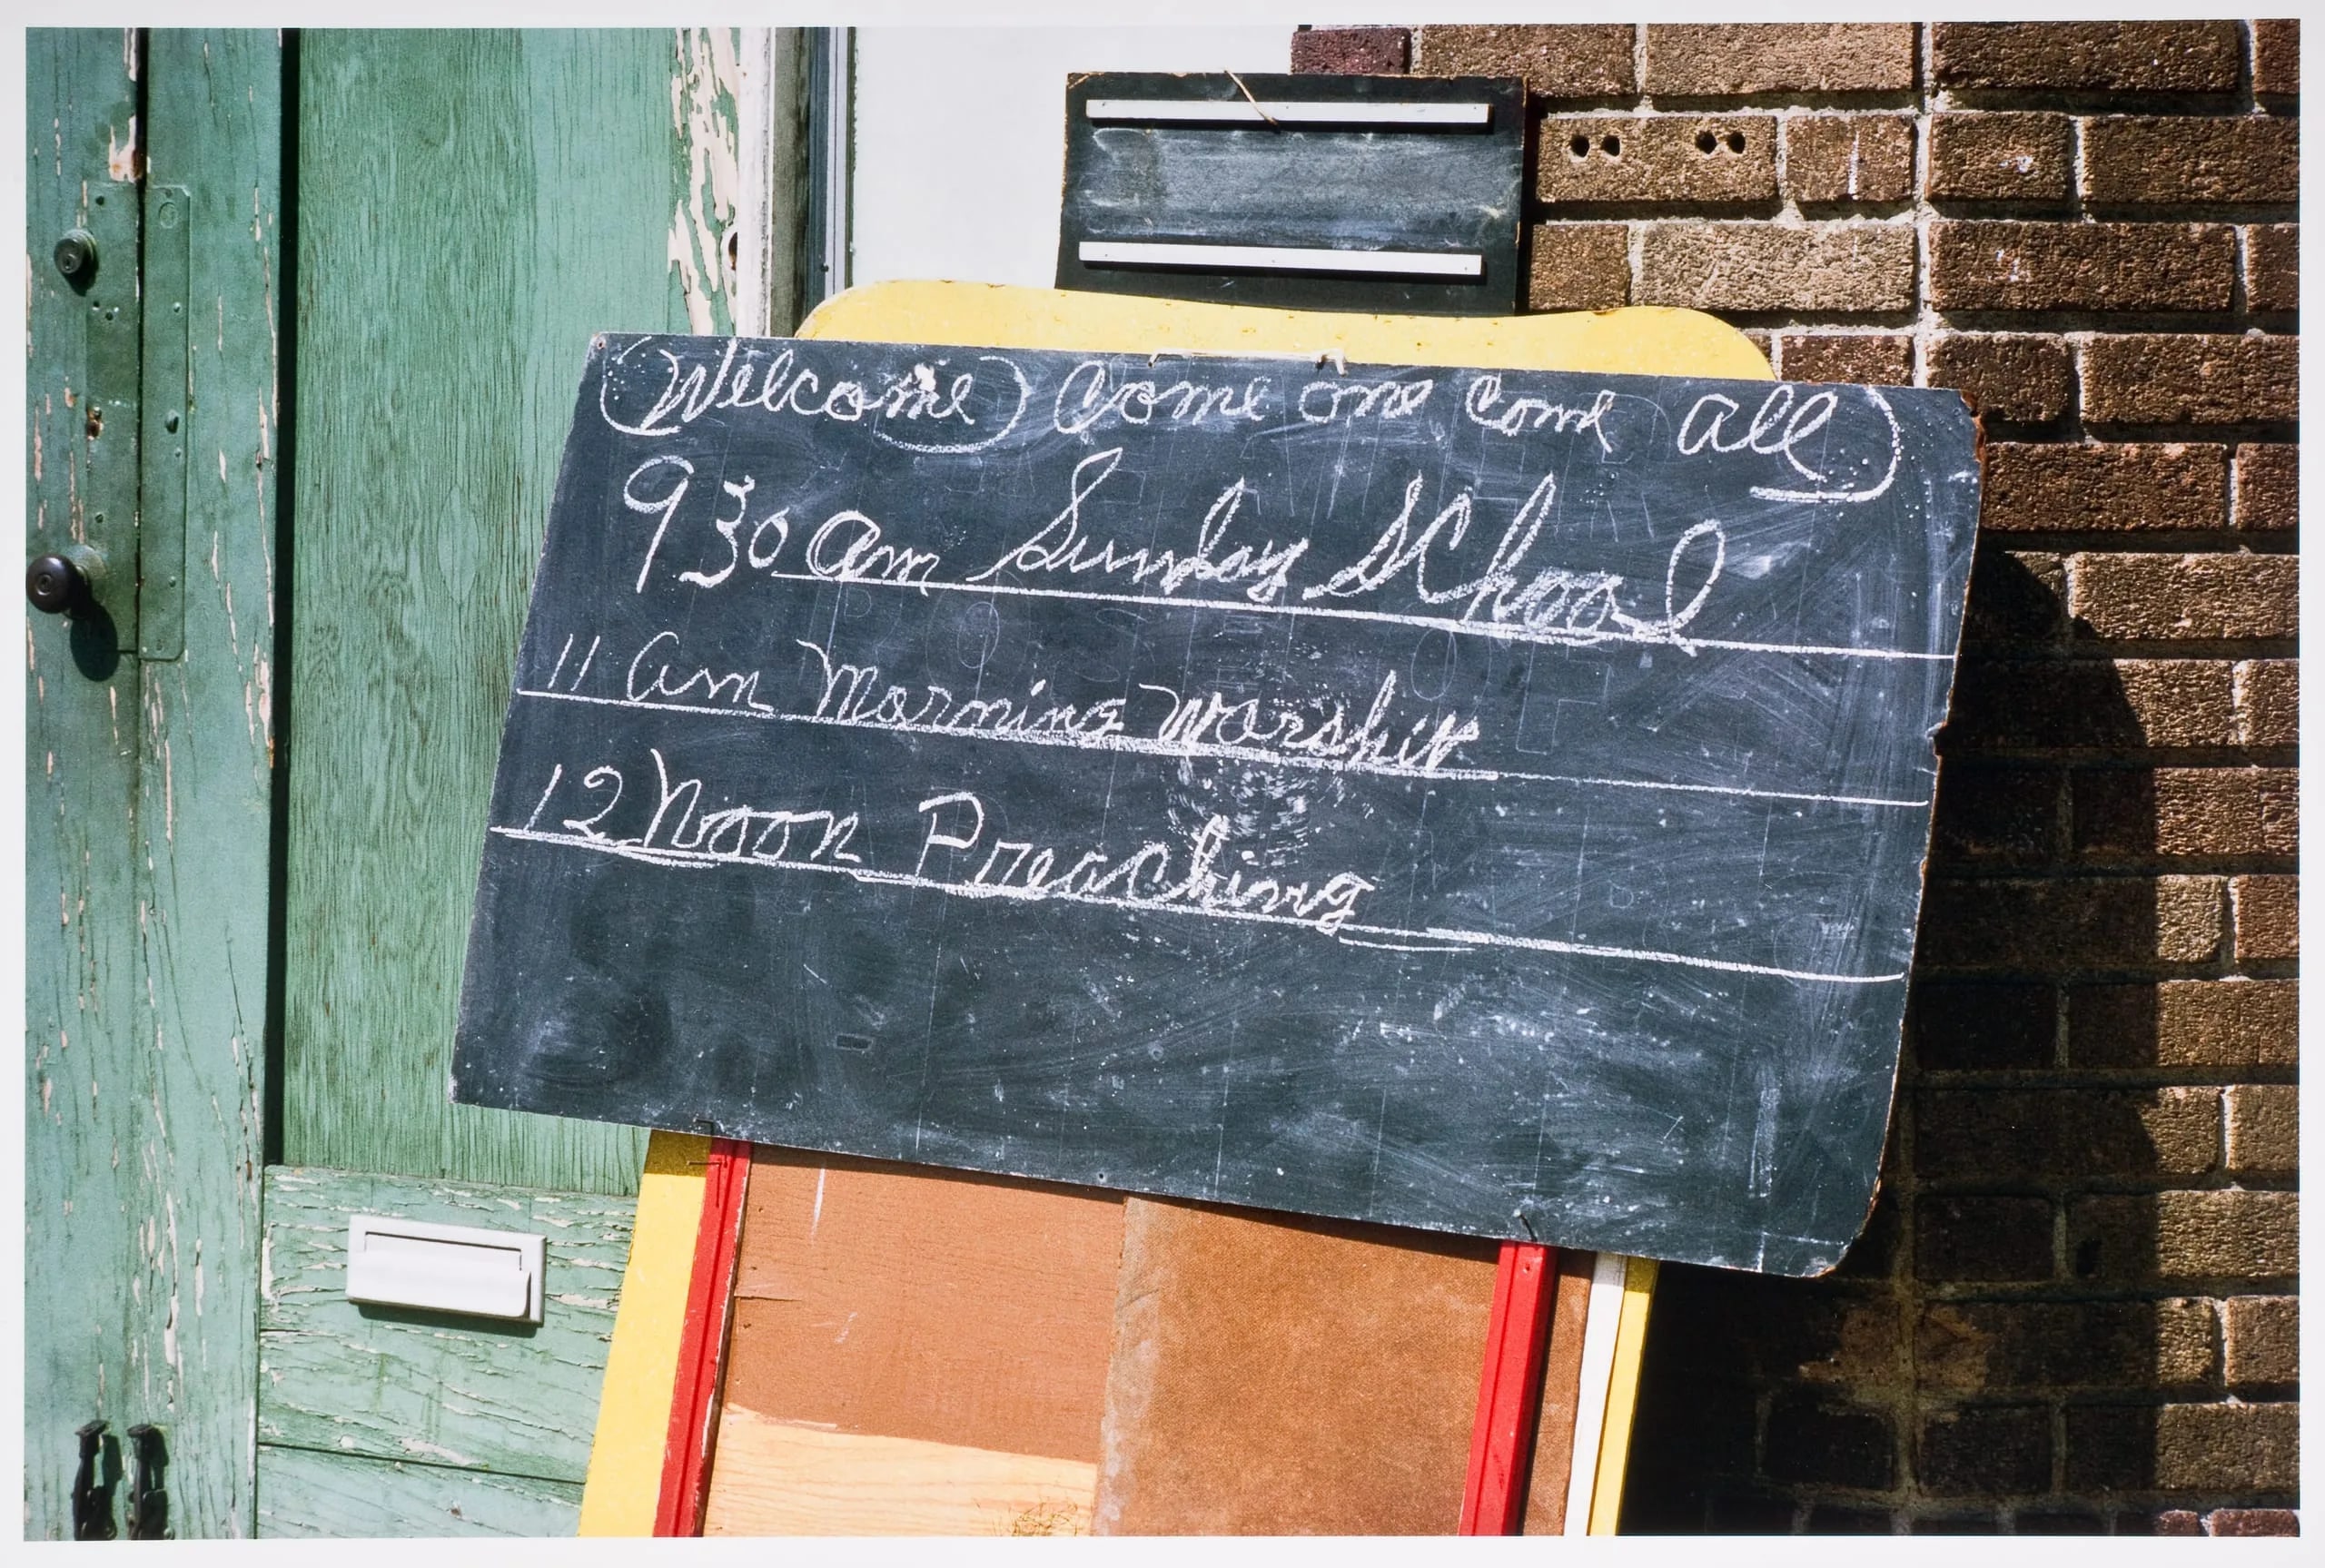 (Welcome) Come one come all)
9 30 am Sunday SChool
11 am Morning Worship
12 Noon Preaching